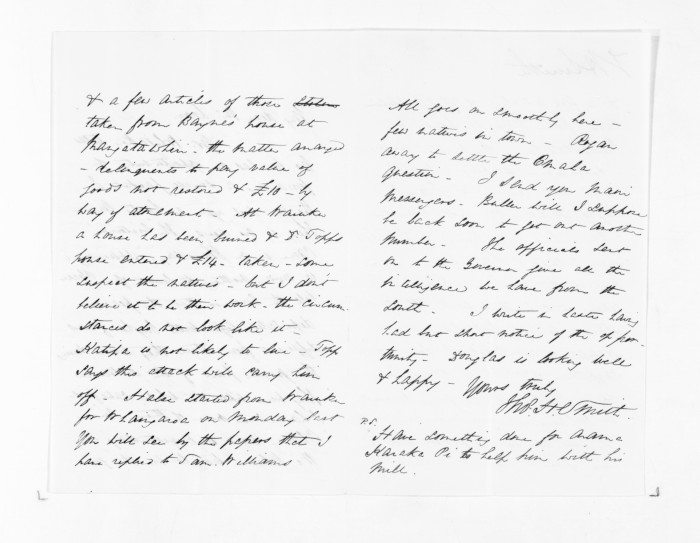 & a few articles of those stolen
taken from Bayne's house at
Mangatawhiri. The matter arranged
- delinquents to pay value of
goods not restored & £10 - by
way of atonement - At Waiuku
a house has been burned & Dr Topp's
house entered & £14 - taken - some
suspect the natives - but I don't
believe it to be their work - the circum
stances do not look like it -
Katipa is not likely to live - Topp
says this attack will carry him
off. Halse started from Waiuku
for Whaingaroa on Monday last
You will see by the papers that I
have replied to Sam. Williams
All goes on smoothly here -
few natives in town - Rogan
away to settle the Omaha
question - I send you Maori
Messengers. Buller will I suppose
be back soon to get out another
number. The officials sent
on to the Governor give all the
intelligence we have from the
South. I write in haste having
had but short notice of the oppor-
tunity - Douglas is looking well
& happy - Yours truly
Thos. H. Smith.
P.S.
Have something done for Arama
Karaka Pi to help him with his
mill.